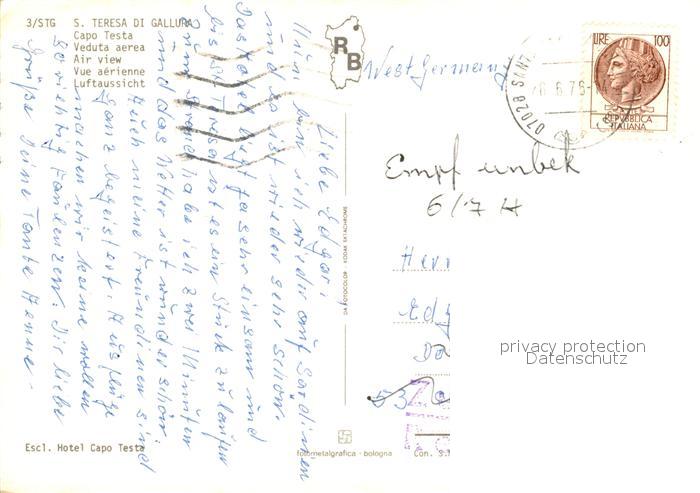 3/STG S. TERESA DI GALLURA
Capo Testa
Veduta aerea
Air view
Vue aérienne
Luftaussicht
RB
West Germany
07028 SANT
6.6.75
LIRE 100
REPVBBLICA
ITALIANA
Empf unbek
6/7 H
Liebe Edgar!
Nun bin ich wieder auf Sardinien
und es ist wieder sehr schön.
Das Hotel liegt ja sehr einsam und
bis St. Teresa ist es ein Stück zu laufen
zum Strand habe ich zwei Minuten
und das Wetter ist wunderschön.
Auch meine Freundinen sind
ganz begeistert. Ausflüge
machen wir keine wollen
so richtig Faulenzen. Dir liebe
Grüße Deine Tante Hanne.
DA FOTOCOLOR KODAK EKTACHROME
Herr
Edg
53
privacy protection
Datenschutz
Escl. Hotel Capo Testa
fotometalgrafica - bologna
Con. S.